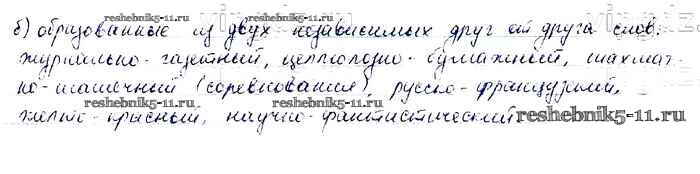 б) образованные из двух независимых друг от друга слов:
журнально-газетный, целлюлозно-бумажный, шахмат-
но-шашечный (соревнования), русско-французский,
желто-красный, научно-фантистический.
reshebnik5-11.ru
reshebnik5-11.ru
reshebnik5-11.ru
reshebnik5-11.ru
reshebnik5-11.ru